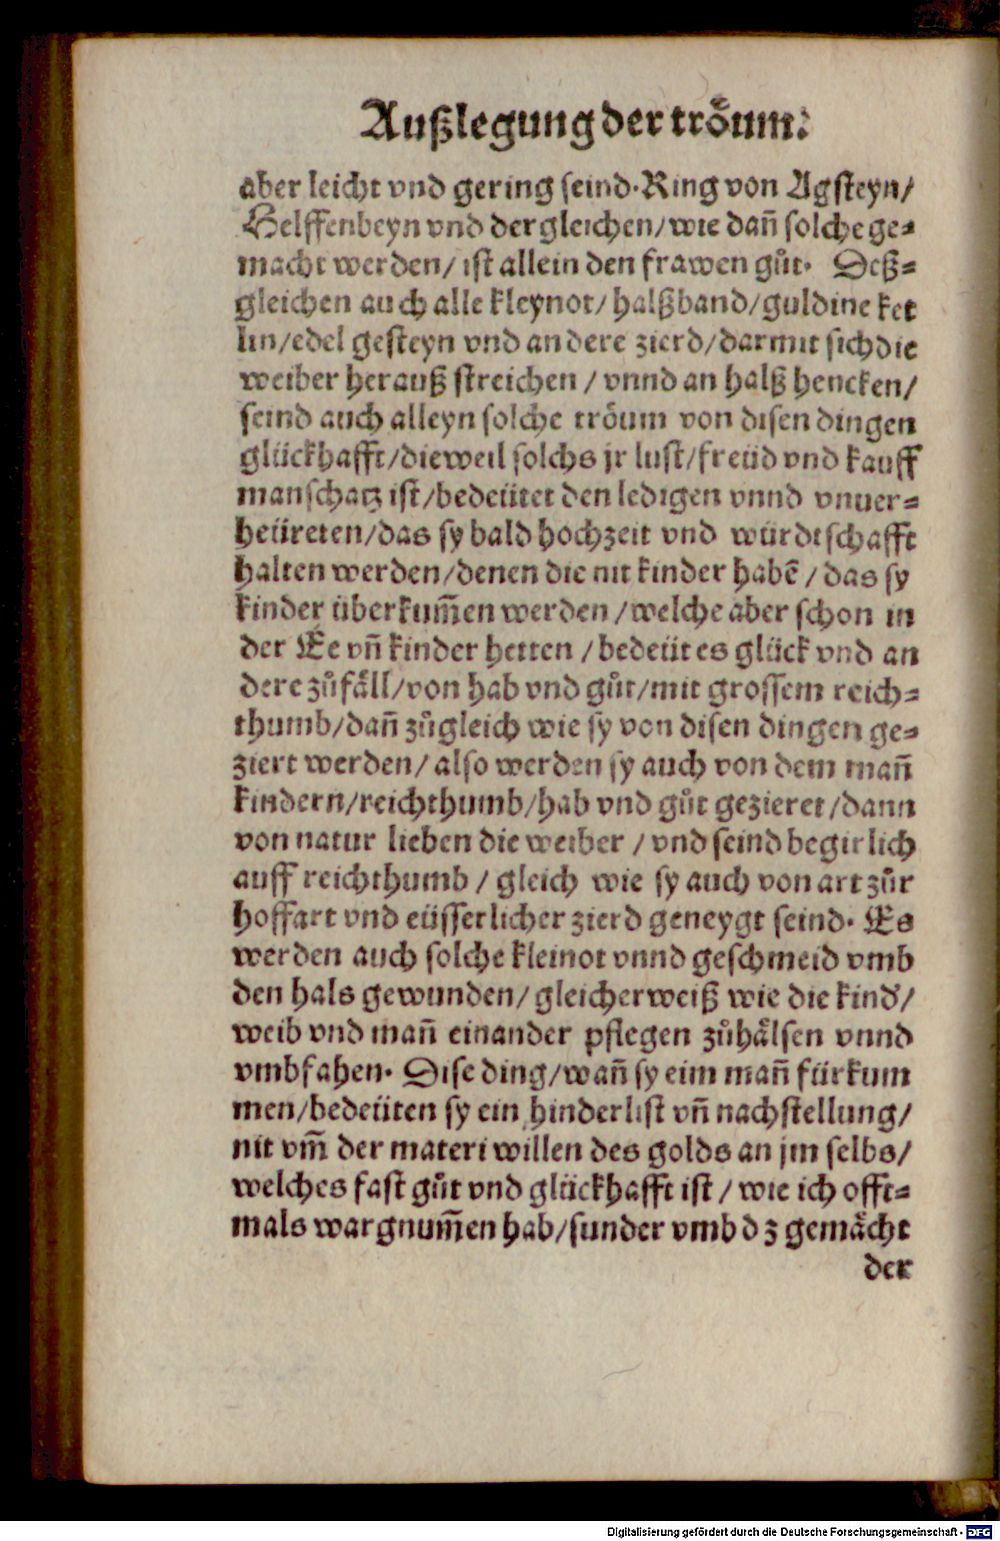 Außlegung der tröum.
aber leicht vnd gering seind. Ring von Agsteyn/
Helffenbeyn vnd der gleichen/wie dañ solche ge-
macht werden/ ist allein den frawen gůt. Deß-
gleichen auch alle kleynot/ halßband/guldine ket
lin/edel gesteyn vnd andere zierd/darmit sich die
weiber herauß streichen / vnnd an halß hencken/
seind auch alleyn solche tröum von disen dingen
glückhafft/dieweil solchs jr lust/freüd vnd kauff
manschatz ist/bedeütet den ledigen vnnd vnuer-
heüreten/das sy bald hochzeit vnd würdtschafft
halten werden/denen die nit kinder habẽ / das sy
kinder überkum̃en werden /welche aber schon in
der Ee vñ kinder hetten /bedeüt es glück vnd an
dere zůfäll/von hab vnd gůt/mit grossem reich-
thumb/dañ zůgleich wie sy von disen dingen ge-
ziert werden/ also werden sy auch von dem mañ
kindern/reichthumb/hab vnd gůt gezieret/dann
von natur lieben die weiber / vnd seind begirlich
auff reichthumb / gleich wie sy auch von art zůr
hoffart vnd eüsserlicher zierd geneygt seind. Es
werden auch solche kleinot vnnd geschmeid vmb
den hals gewunden/gleicherweiß wie die kind'/
weib vnd mañ einander pflegen zůhälsen vnnd
vmbfahen. Dise ding/wañ sy eim mañ fürkum
men/bedeüten sy ein hinderlist vñ nachstellung/
nit vm̃ der materi willen des golds an jm selbs/
welches fast gůt vnd glückhafft ist / wie ich offt-
mals wargnum̃en hab/sunder vmb dz gemächt
der
Digitalisierung gefördert durch die Deutsche Forschungsgemeinschaft - DFG